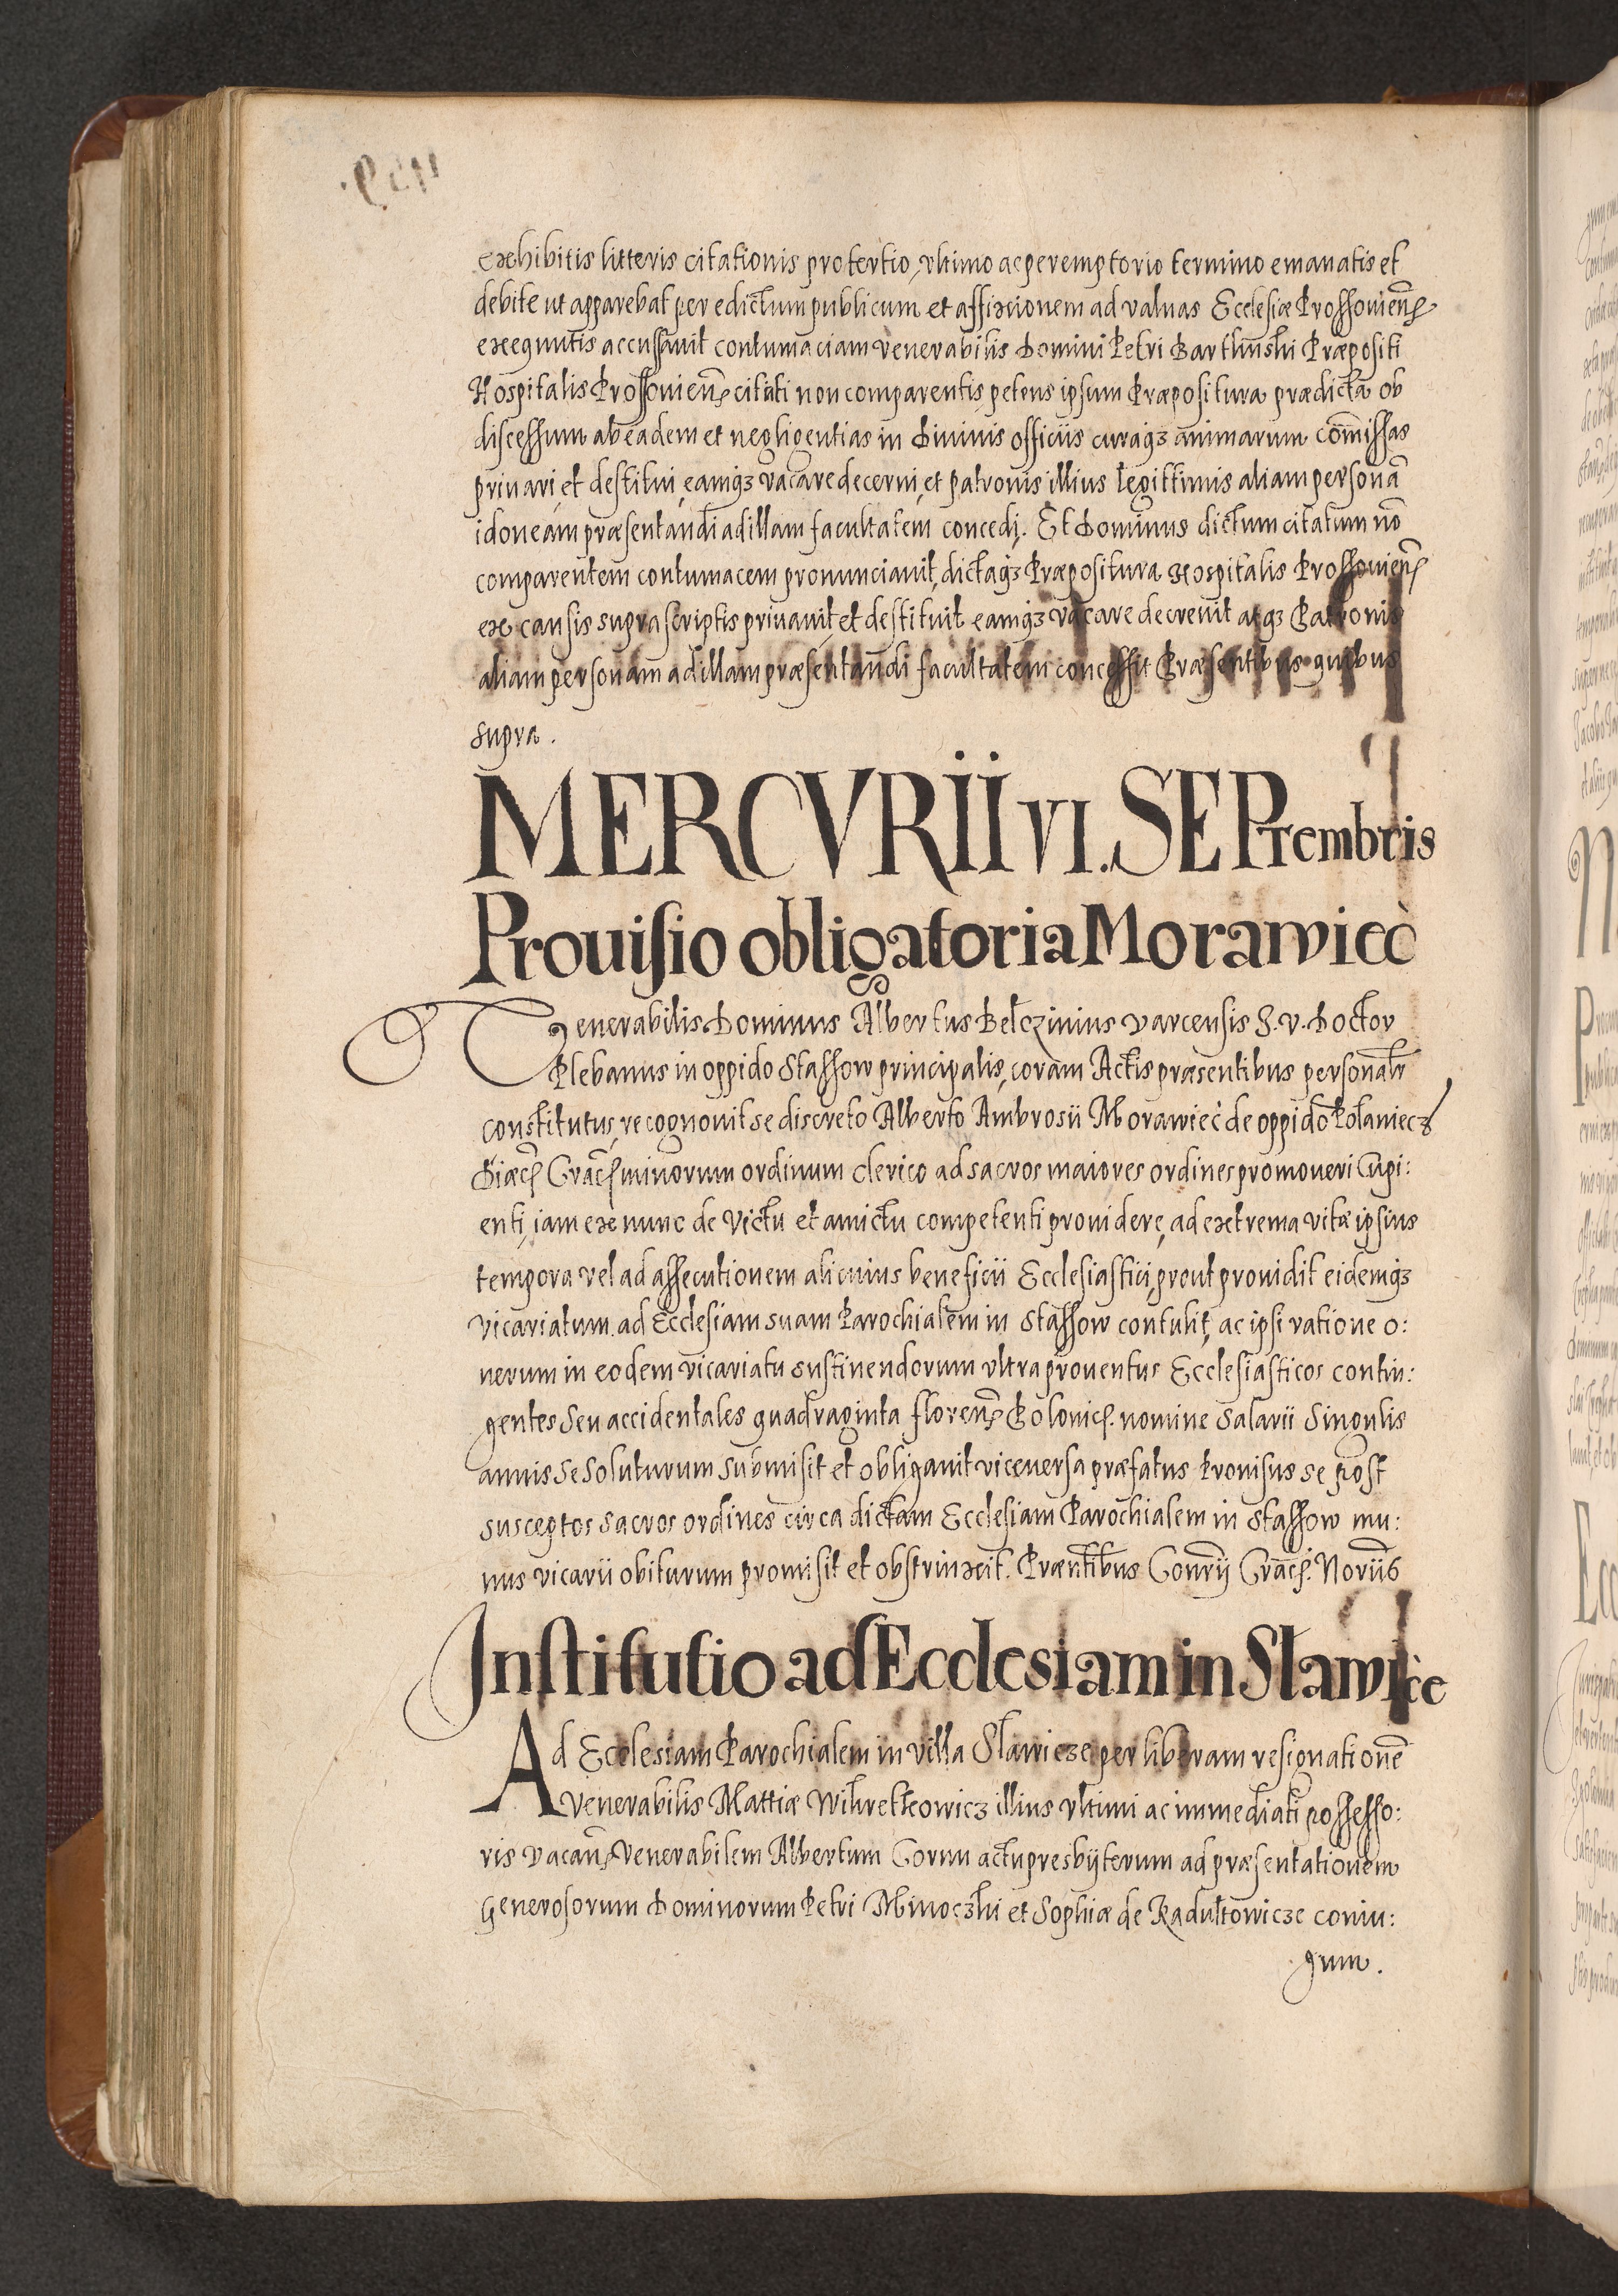 exhibitis litteris citationis pro tertio, vltimo ac peremptorio termino emanatis et
debite ut apparebat per edictum publicum et affixionem ad valuas Ecclesiæ Prossouieñ
exequutis accussauit contumaciam venerabilis Domini Petri Barthuski Præpositi
Hospitalis Prossouieñ citati non comparentis petens ipsum Præpositura prædicta ob
discessum ab eadem et negligentias in Diuinis officiis curaq3 animarum com̄issas
priuari et destitui, eamq3 vacare decerni, et patronis illius legittimis aliam personā
idoneam præsentandi ad illam facultatem concedi. Et Dominus dictum citatum nō
comparentem contumacem pronunciauit, dictaq3 Præpositura Hospitalis Prossouieñ
ex causis supra scriptis priuauit et destituit eamq3 vacare decreuit atq3 Patronis
aliam personam ad illam præsentandi facultatem concessit Præsentibus quibus
supra.
MERCVRII VI. SEPTembris
Prouisio obligatoria Morawiec
Venerabilis Dominus Albertus Belczinius Varcensis I. V. Doctor
Plebanus in oppido Stassow principalis, coram Actis præsentibus personalr
constitutus, recognouit se discreto Alberto Ambrosii Morawiec de oppido Połaniecz
Diæc̄ Crac̄ minorum ordinum clerico ad sacros maiores ordines promoueri Cupi:
enti, iam ex nunc de victu et amictu competenti prouidere, ad extrema vitæ ipsius
tempora vel ad assecutionem alicuius beneficii Ecclesiastici, prout prouidit eidemq3
vicariatum ad Ecclesiam suam Parochialem in Stassow contulit, ac ipsi ratione o:
nerum in eodem vicariatu sustinendorum vltra prouentus Ecclesiasticos contin:
gentes seu accidentales quadraginta floreñ Polonic. nomine Salarii Singulis
annis se soluturum submisit et obligauit vice versa præfatus Prouisus se post
susceptos sacros ordines circa dictam Ecclesiam Parochialem in Stassow mu:
nus vicarii obiturum promisit et obstrinxit. Præntibus Conrȳ Crac̄. Noriis
Institutio ad Ecclesiam in Sławice
Ad Ecclesiam Parochialem in villa Sławicze per liberam resignationē
Venerabilis Mattiæ Wikretkowicz illius vltimi ac immediati possesso:
ris vacañ Venerabilem Albertum Cornu actu presbyterum ad præsentationem
Generosorum Dominorum Petri Minoczki et Sophiæ de Radułtowicze coniu:
gum.